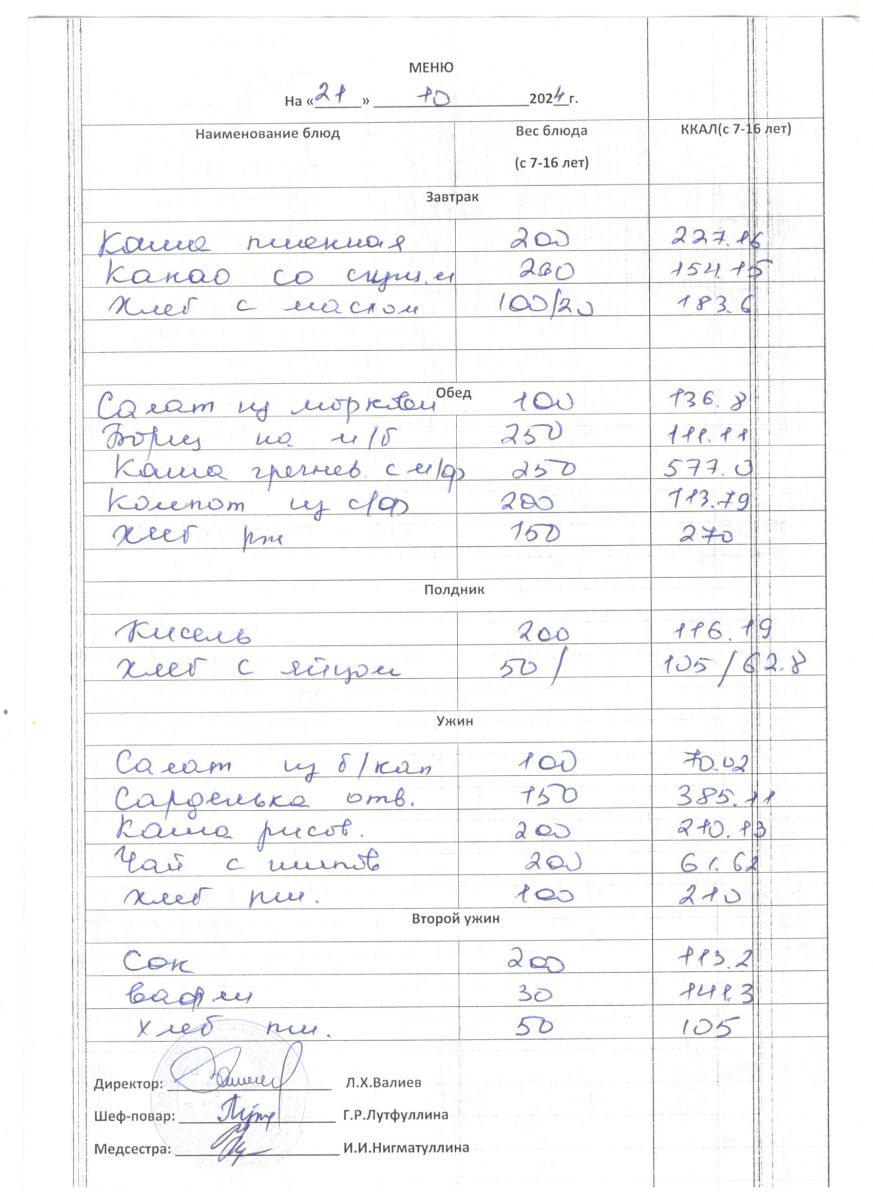 МЕНЮ
На «21» 10 2024 г.
Наименование блюд Вес блюда (с 7-16 лет) ККАЛ(с 7-16 лет)
Завтрак
Каша пшенная 200 227.16
Какао со сгущ.м 200 154.15
Хлеб с маслом 100/20 183.6
Обед
Салат из моркови 100 136.8
Борщ на м/б 250 111.11
Каша гречнев. с м/ф 250 577.0
Компот из с/ф 200 113.79
Хлеб рж 150 270
Полдник
Кисель 200 116.19
Хлеб с яйцом 50/ 105/62.8
Ужин
Салат из б/кап 100 70.02
Сарделька отв. 150 385.11
Каша рисов. 200 210.13
Чай с шипов 200 61.62
Хлеб пш. 100 210
Второй ужин
Сок 200 113.2
Вафли 30 141.3
Хлеб пш. 50 105
Директор: Л.Х.Валиев
Шеф-повар: Г.Р.Лутфуллина
Медсестра: И.И.Нигматуллина